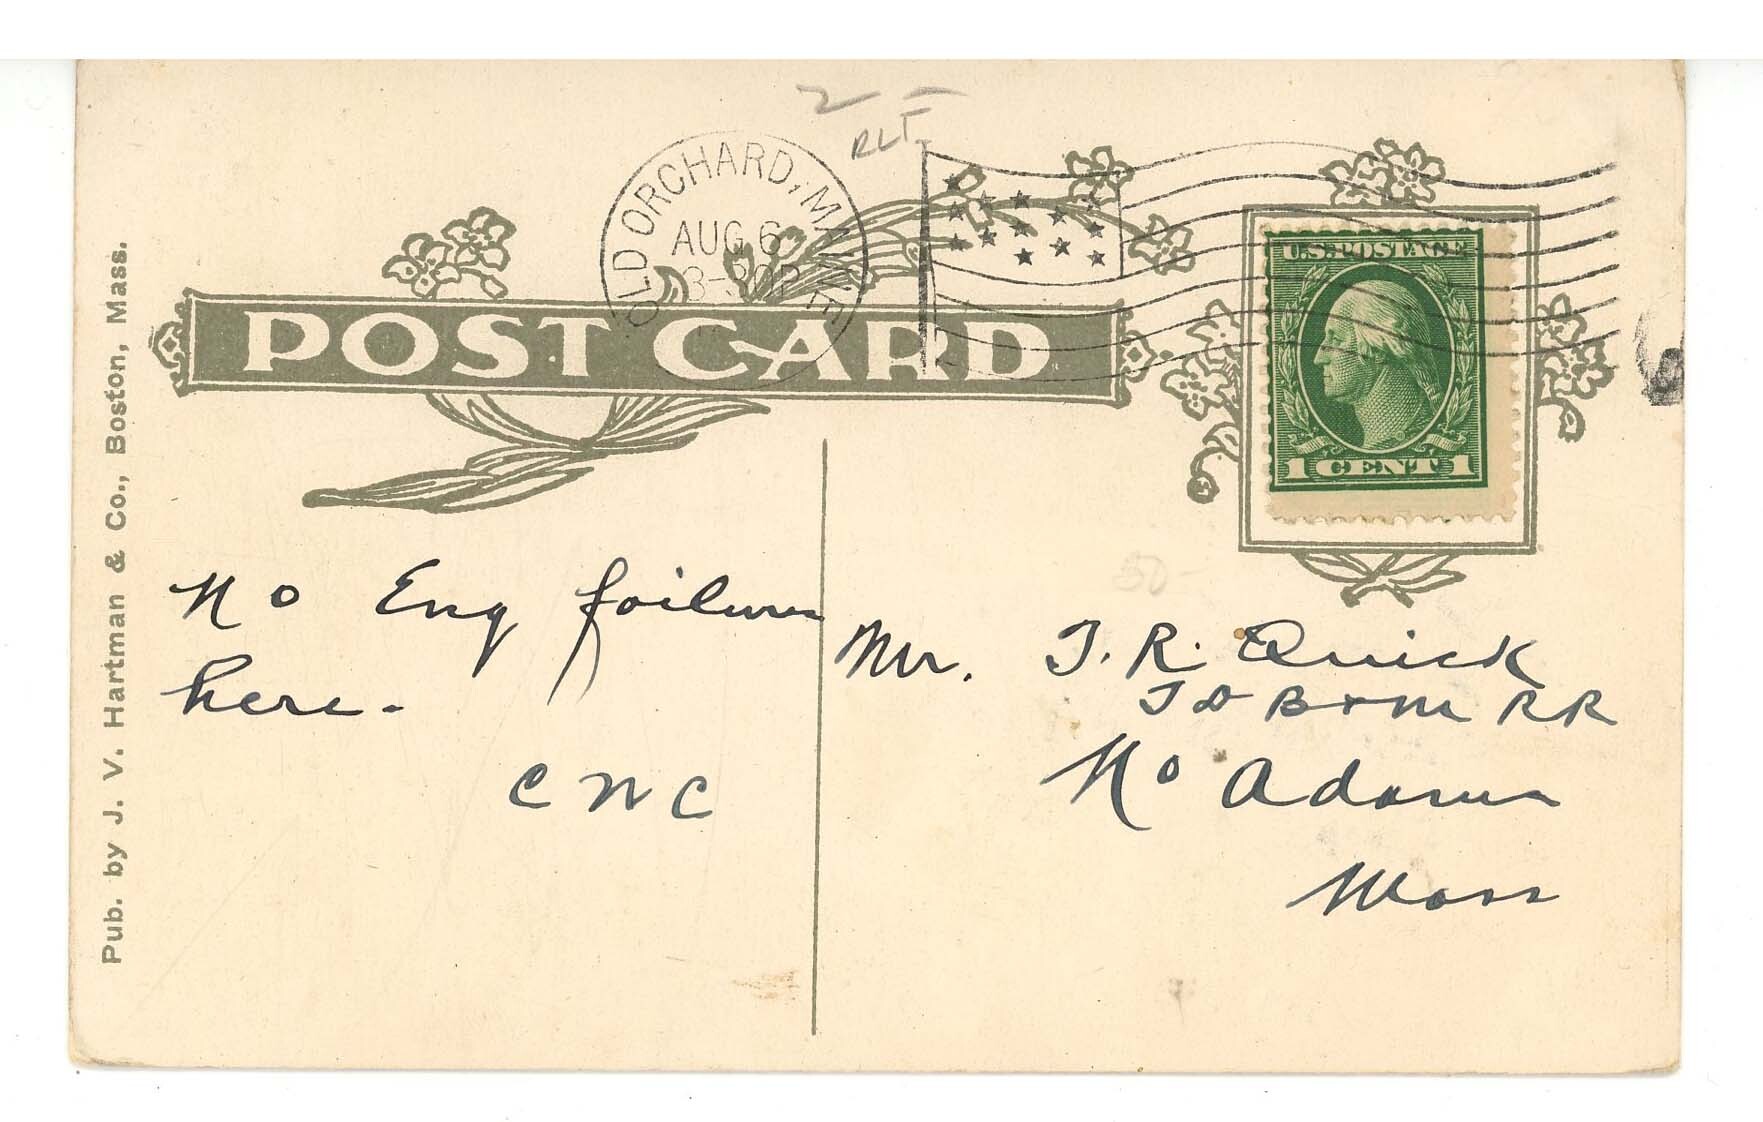 2 -
RLF
OLD ORCHARD, MAINE
AUG 6
3-30P
U.S. POSTAGE
1 CENT 1
POST CARD
Pub. by J. V. Hartman & Co., Boston, Mass.
No Eng failures
here.
C N C
50-
Mr. T. R. Quick
TD B & M RR
No Adams
Mass